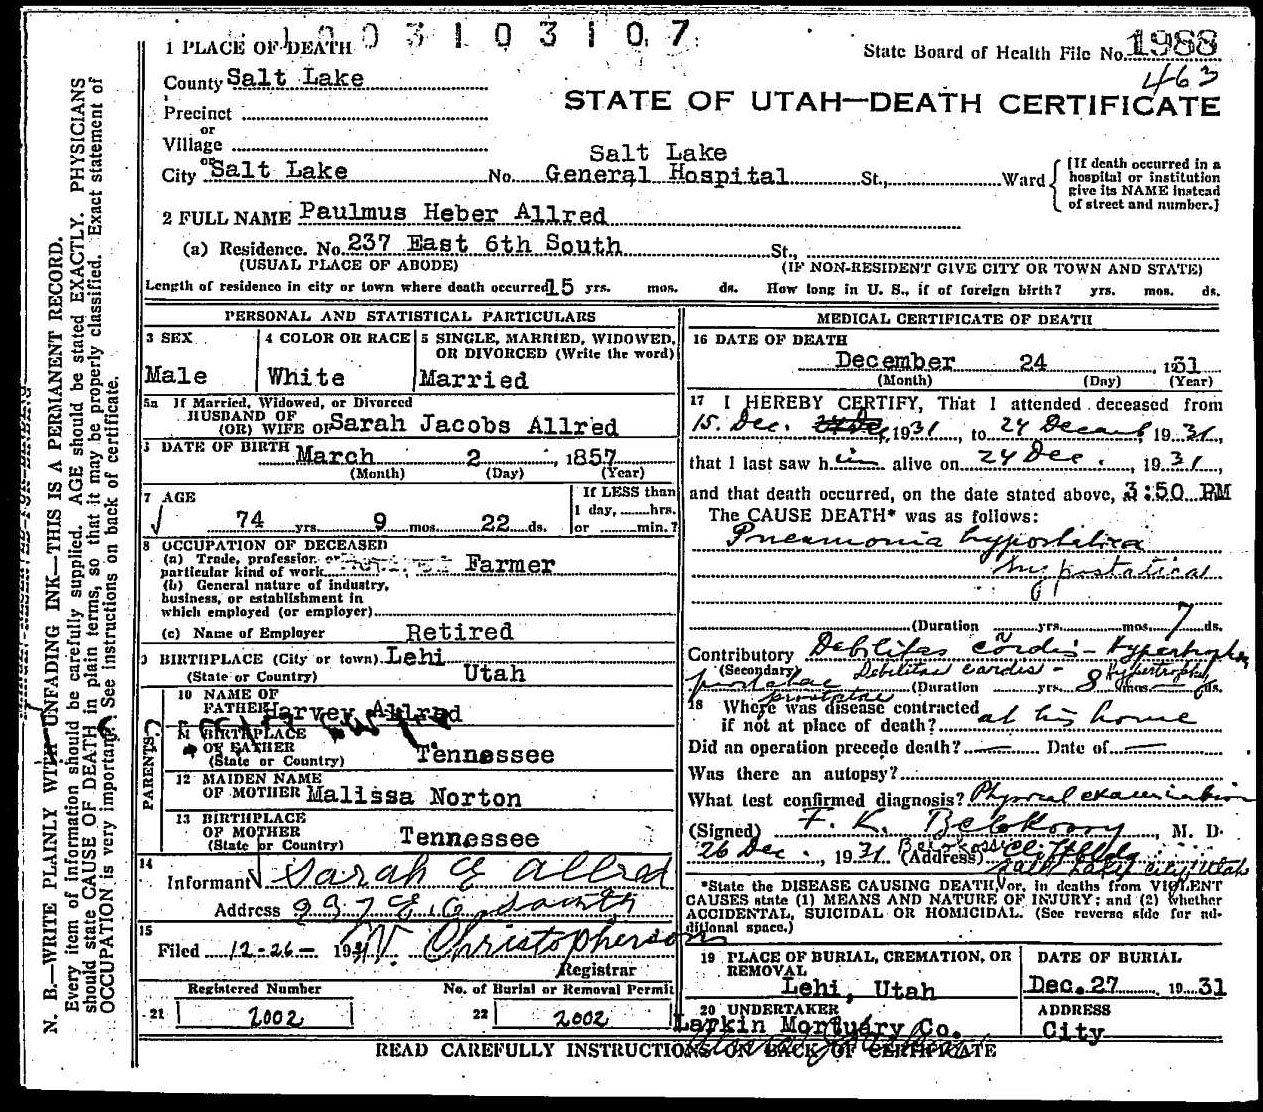 1003103107
1 PLACE OF DEATH
State Board of Health File No. 1988
463
County Salt Lake
STATE OF UTAH—DEATH CERTIFICATE
Precinct
or
Village
or
City Salt Lake No. Salt Lake General Hospital St., Ward
[If death occurred in a
hospital or institution
give its NAME instead
of street and number.]
2 FULL NAME Paulmus Heber Allred
(a) Residence. No. 237 East 6th South St.,
(USUAL PLACE OF ABODE) (IF NON-RESIDENT GIVE CITY OR TOWN AND STATE)
Length of residence in city or town where death occurred 15 yrs. mos. ds. How long in U. S., if of foreign birth? yrs. mos. ds.
PERSONAL AND STATISTICAL PARTICULARS
3 SEX
Male
4 COLOR OR RACE
White
5 SINGLE, MARRIED, WIDOWED,
OR DIVORCED (Write the word)
Married
5a If Married, Widowed, or Divorced
HUSBAND OF
(OR) WIFE OF Sarah Jacobs Allred
DATE OF BIRTH March 2, 1857
(Month) (Day) (Year)
7 AGE
74 yrs. 9 mos. 22 ds.
If LESS than
1 day, hrs.
or min.?
8 OCCUPATION OF DECEASED
(a) Trade, profession, or
particular kind of work Farmer
(b) General nature of industry,
business, or establishment in
which employed (or employer)
(c) Name of Employer Retired
9 BIRTHPLACE (City or town) Lehi
(State or Country) Utah
PARENTS
10 NAME OF
FATHER Harvey Allred
11 BIRTHPLACE
OF FATHER
(State or Country) Tennessee
12 MAIDEN NAME
OF MOTHER Malissa Norton
13 BIRTHPLACE
OF MOTHER
(State or Country) Tennessee
14
Informant Sarah E Allred
Address 237 E. 6. South
15
Filed 12-26- 1931 W. Christopherson
Registrar
Registered Number No. of Burial or Removal Permit
21 2002 22 2002
MEDICAL CERTIFICATE OF DEATH
16 DATE OF DEATH
December 24, 1931
(Month) (Day) (Year)
17 I HEREBY CERTIFY, That I attended deceased from
15. Dec. 1931, to 24 Decemb, 1931,
that I last saw him alive on 24 Dec., 1931,
and that death occurred, on the date stated above, 3:50 PM
The CAUSE DEATH* was as follows:
Pneumonia hypostatica
hypostatical
(Duration yrs. mos. 7 ds.
Contributory Debilitas cordis - Hypertrophia
(Secondary) Debilitas cardis - Hypertrophy
prostatae
prostatae (Duration yrs. 8 mos. ds.
18 Where was disease contracted
if not at place of death? at his home
Did an operation precede death? — Date of —
Was there an autopsy?
What test confirmed diagnosis? Physical examination
(Signed) F. K. M. D.
26 Dec., 1931 (Address) Clift bldg
Salt Lake City, Utah
*State the DISEASE CAUSING DEATH, or, in deaths from VIOLENT
CAUSES state (1) MEANS AND NATURE OF INJURY: and (2) whether
ACCIDENTAL, SUICIDAL OR HOMICIDAL. (See reverse side for ad-
ditional space.)
19 PLACE OF BURIAL, CREMATION, OR
REMOVAL
Lehi, Utah
DATE OF BURIAL
Dec. 27 1931
20 UNDERTAKER
Larkin Mortuary Co.
ADDRESS
City
READ CAREFULLY INSTRUCTIONS ON BACK OF CERTIFICATE
N. B.—WRITE PLAINLY WITH UNFADING INK—THIS IS A PERMANENT RECORD.
Every item of information should be carefully supplied. AGE should be stated EXACTLY. PHYSICIANS
should state CAUSE OF DEATH in plain terms, so that it may be properly classified. Exact statement of
OCCUPATION is very important. See instructions on back of certificate.